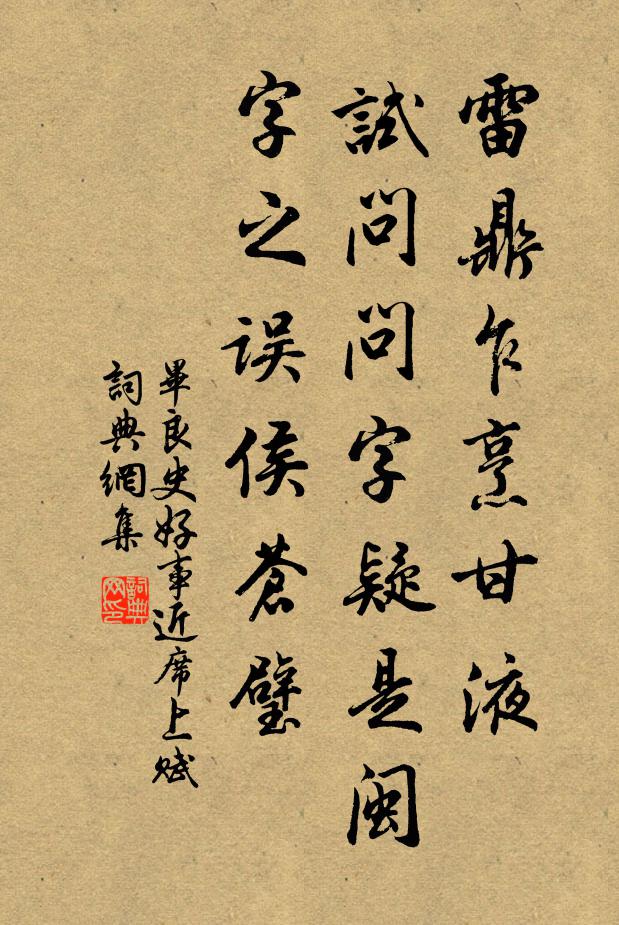 雷鼎乍烹甘液
試問問字疑是閩
字之误侯蒼璧
畢良史好事近席上赋
詞典網集
詞典
网印